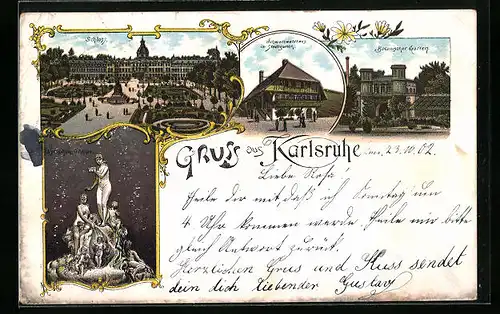 Schloss.
Schwarzwaldhaus
im Stadtgarten.
Botanischer Garten
Gruss aus Karlsruhe
den 23.10.02
Liebe Rosa!
Theile dir mit daß ich Sonntag um
4 Uhr kommen werde. Theile mir bitte
gleich Antwort zurück.
Herzlichen Grus und Kuss sendet
dein dich liebender Gustav